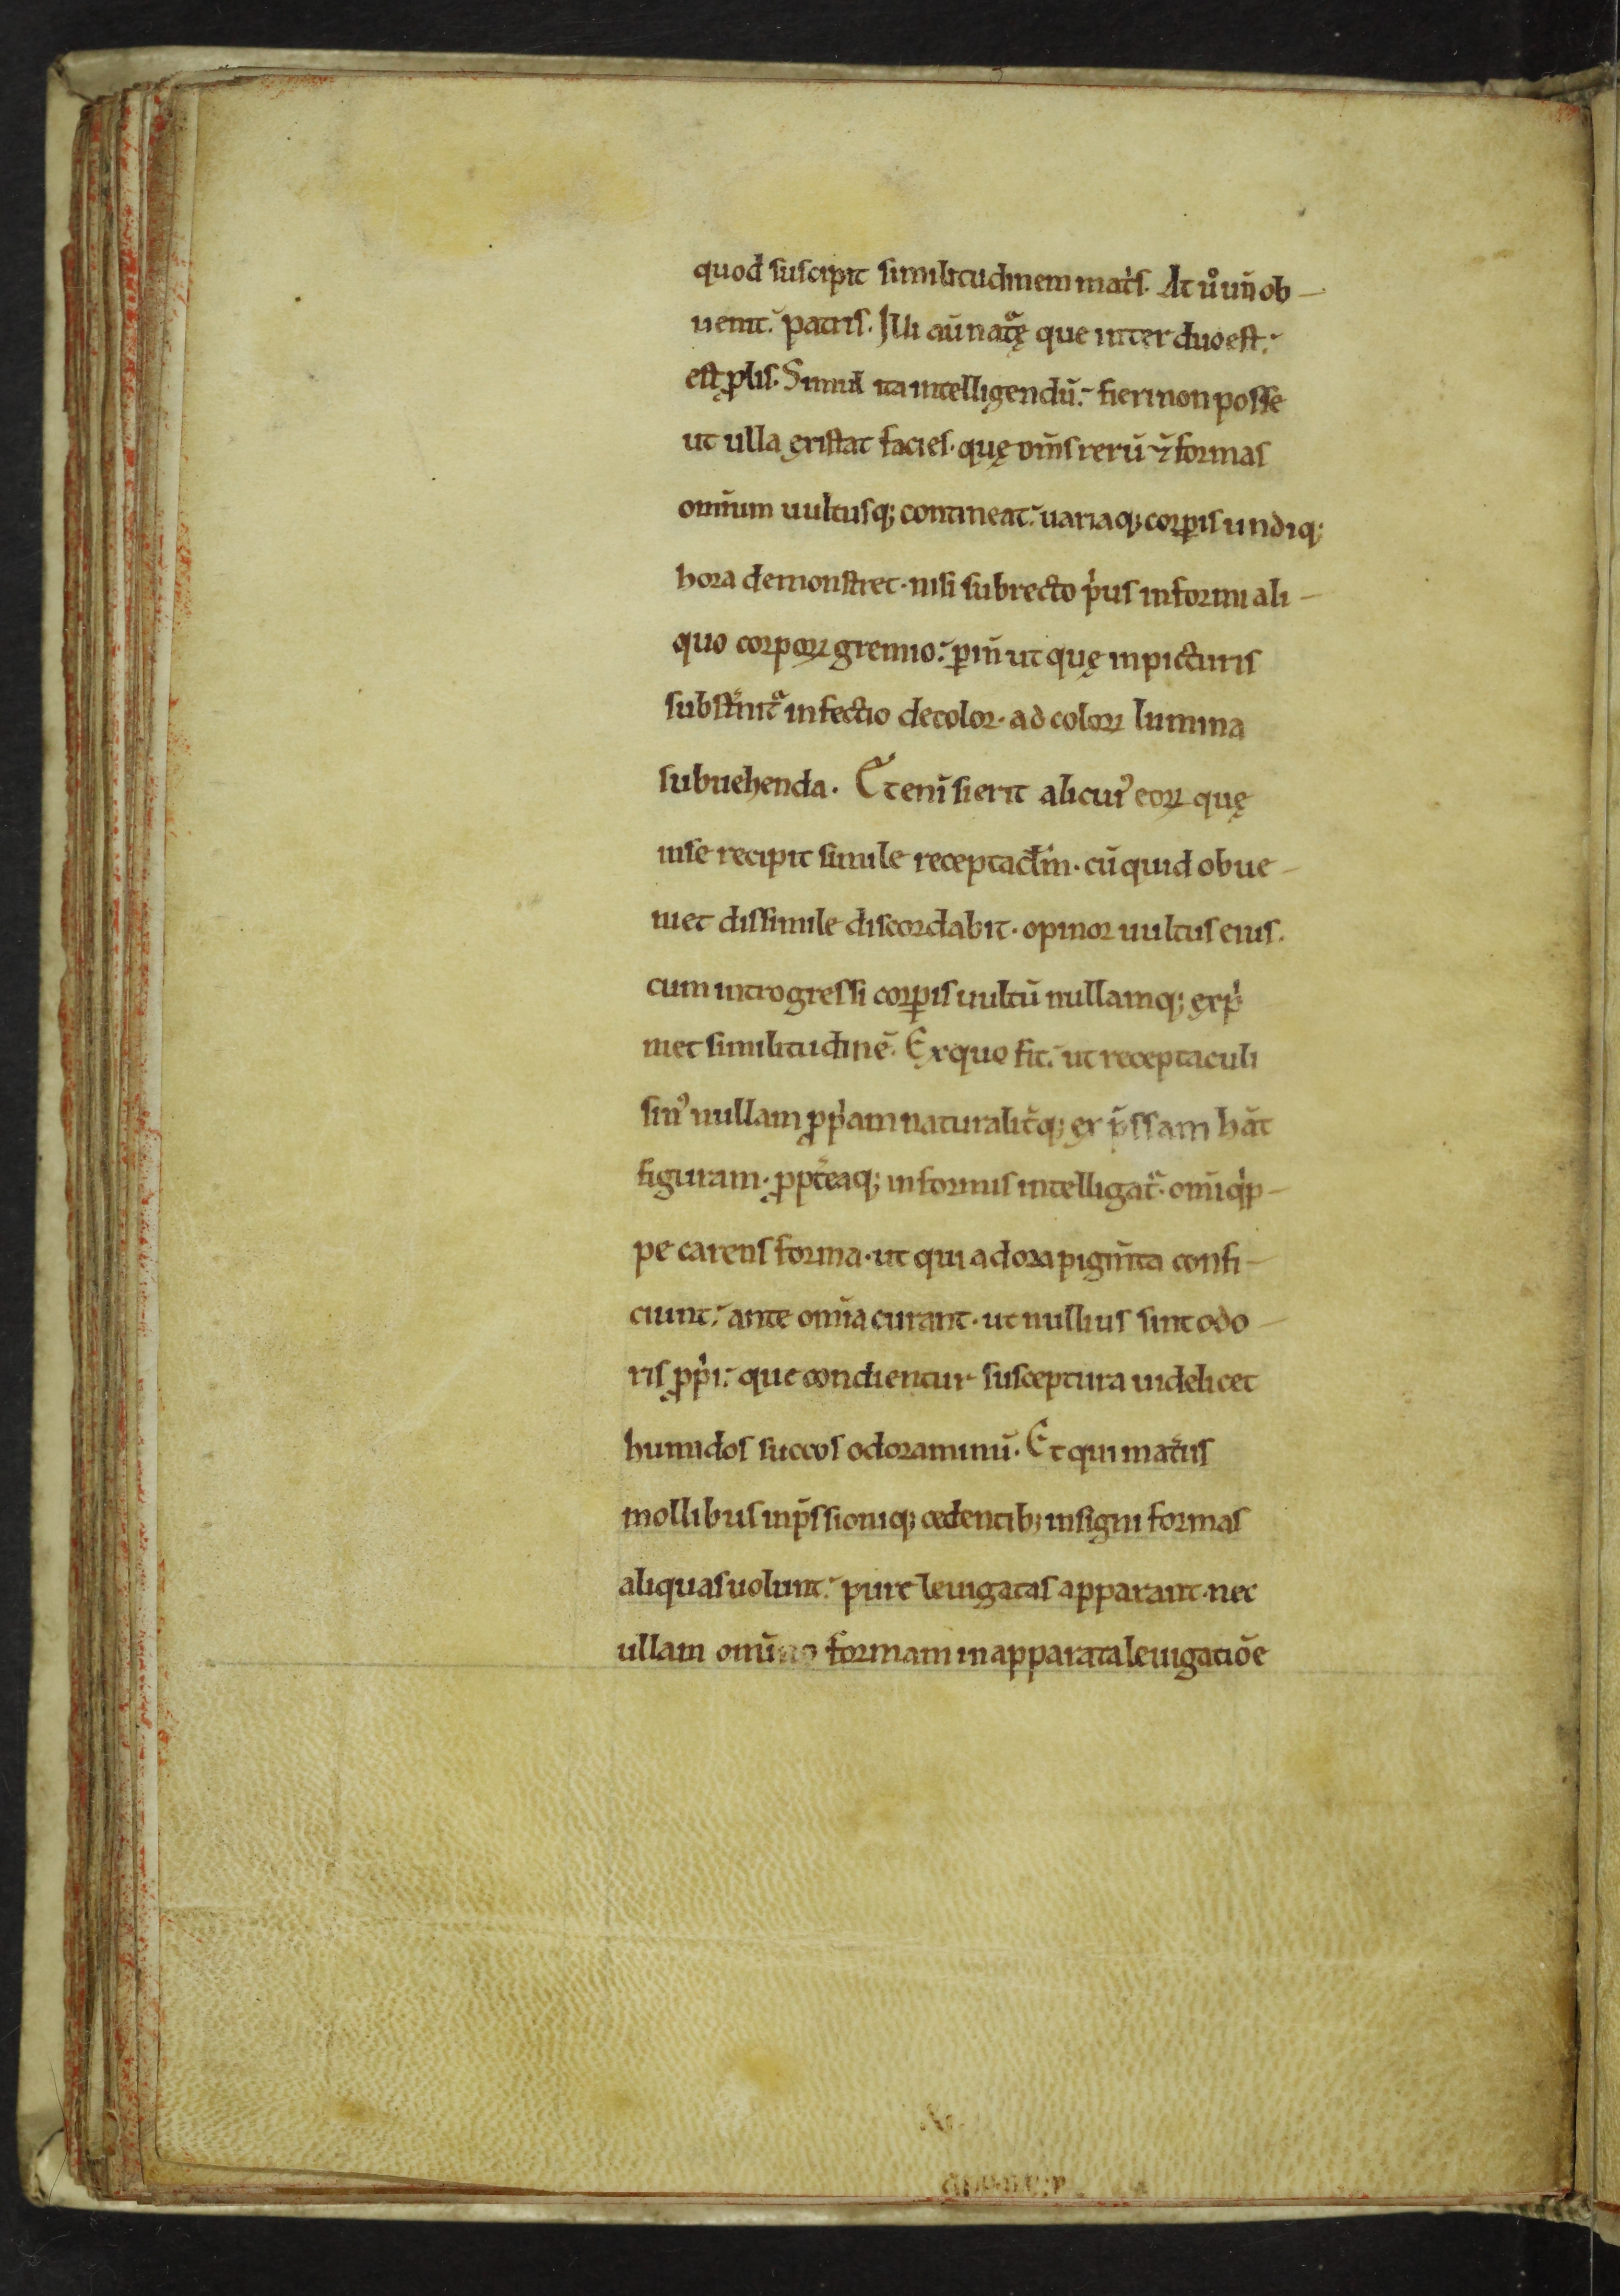 quod suscipit similitudinem mat͛s. At uͦ un̄ ob-
uenit. patris. Illi aū natᷓę que inter duo est.
est ꝓlis. Simul ita intelligendū. fieri non posse
ut ulla existat facies. quę om̄s rerū ⁊ formas
om̄ium uultusq; contineat. uariaq; corꝑis undiq;
hora demonstret. nisi subrecto pͥus informi ali-
quo corpoꝝ gremio. ꝑin̄ ut quę in picturis
subst͛nitᷓ infectio decolor. ad coloꝝ lumina
subuehenda. Etenī si erit alicuiꝰ eoꝝ quę
in se recipit simile receptacl̄m. cū quid obue-
niet dissimile discordabit. opinor uultus eius.
cum introgressi corꝑis uultū nullamq; expͥ
met similitudinē. Ex quo fit. ut receptaculi
sinꝰ nullam ꝓpͥam naturalit͛q; ex p̄ssam hāt
figuram. ꝓpt͛eaq; informis intelligatᷓ. om̄i qͥp-
pe carens forma. ut qui adora pigm̄ta confi-
ciunt. ante om̄ia curant. ut nullius sint odo-
ris ꝓpͥi. que condientur susceptura uidelicet
humidos succos odoraminū. Et qui mat͛iis
mollibus inp̄ssioniq; cedentib; insigni formas
aliquas uolunt. pure leuigatas apparant. nec
ullam om̄ino formam in apparata leuigatiōe